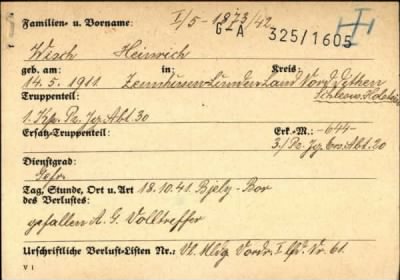 Familien- u. Vorname: I/5-1873/42
G-A 325/1605
Wisch Heinrich
geb. am: in: Kreis:
14. 5. 1911. Zennhusen-Lunden, Land Nord. Dithm.
Schlesw. Holstein
Truppenteil:
1. Kp. Pz. Jg. Abt. 30
Ersatz-Truppenteil: Erk.-M.: -644-
3./Pz. Jg. Ers. Abt. 20
Dienstgrad:
Gefr.
Tag, Stunde, Ort u. Art 18.10.41. Bjely-Bor
des Verlustes:
gefallen A. G. Volltreffer
Urschriftliche Verlust-Listen Nr.: Vl. Mldg. Vordr. I lfd. Nr. 61.
V I